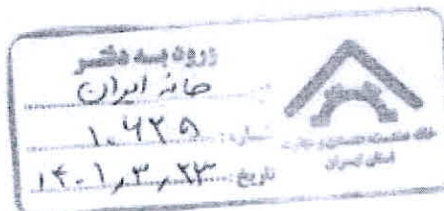 ورود به دفتر
خانه ایران
شماره: ۱۰۶۲۵
تاریخ: ۱۴۰۱,۳,۲۳
خانه صنعت، معدن و تجارت
استان تهران